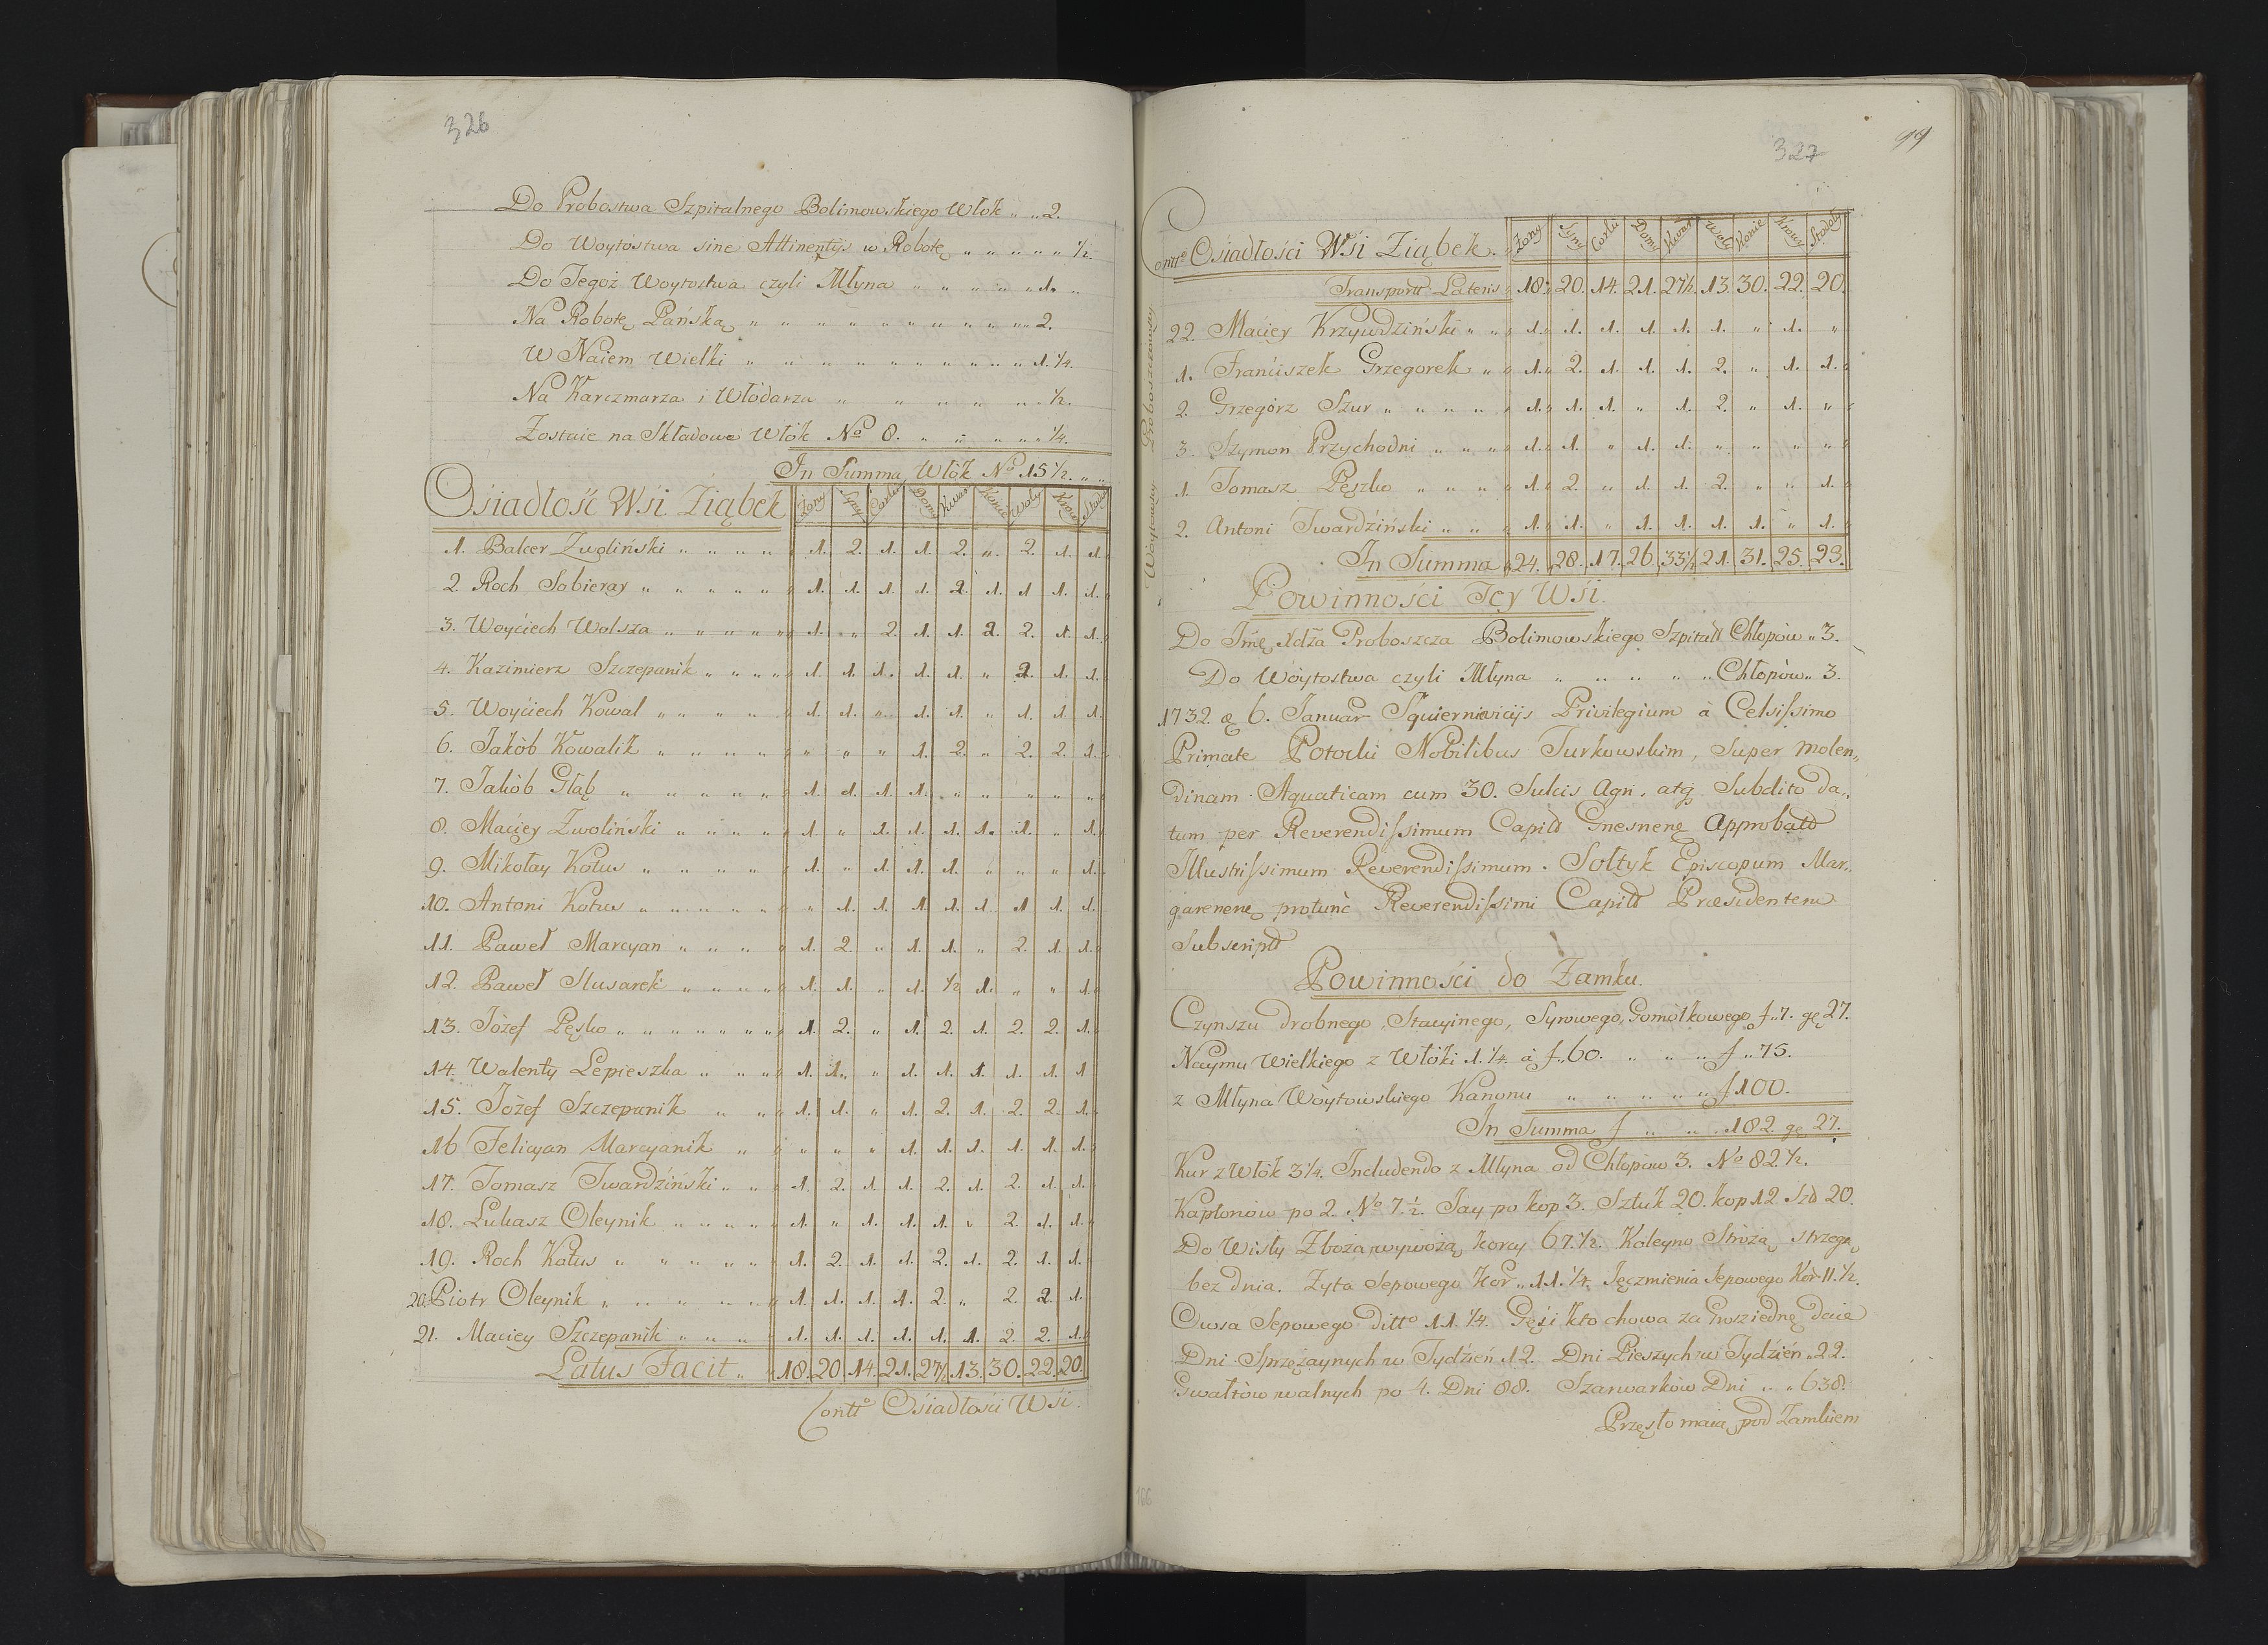 326
Do Probostwa Szpitalnego Bolimowskiego Włók „ „ 2.
Do Woytostwa sine Attinentÿs w Robotę „ „ „ „ „ ½.
Do Tegoż Woytostwa czyli Młyna „ „ „ „ „ 1. „
Na Robotę Pańską „ „ „ „ „ „ „ „ „ „ 2.
W Naiem Wielki „ „ „ „ „ „ „ „ „ „ 1. ¼.
Na Karczmarza i Włódarza „ „ „ „ „ „ ½.
Zostaie na Składowe Włók No 8. „ „ „ „ ¼.
In Summa Włók No 15 ½. „ „
Osiadłość Wśi Ziąbek Żony Syny Corki Domy Kwart Konie Woły Krowy Stodoły
1. Balcer Zwoliński „ „ „ „ 1. 2. 1. 1. 2. „ 2. 1. 1.
2. Roch Sobieray „ „ „ „ „ 1. 1. 1. 1. 2. 1. 1 1. 1.
3. Woyciech Wolsza „ „ „ „ „ 1. „ 2. 1. 1. 2. 2. 1. 1.
4. Kazimierz Szczepanik „ „ „ „ 1. 1. 1. 1. 1. „ 2. 1. 1.
5. Woyciech Kowal „ „ „ „ „ 1. 1. „ 1. 1. „ 1. 1. 1.
6. Jakób Kowalik „ „ „ „ „ „ „ „ 1. 2. „ 2. 2. 1.
7. Jakób Głąb „ „ „ „ „ 1. 1. 1. 1. „ „ „ „ „
8. Maciey Zwoliński „ „ „ „ 1. „ 1. 1. 1. 1. 1. „ 1.
9. Mikołay Kotus „ „ „ „ „ 1. „ 1. 1. 1. „ „ „ 1.
10. Antoni Kotus „ „ „ „ „ „ 1. 1. 1. 1. 1. 1 1. 1.
11. Paweł Marcyan „ „ „ „ 1. 2. „ 1. 1. „ 2. 1. 1.
12. Paweł Slusarek „ „ „ „ 1. 1. „ 1. ½ 1. „ „ 1.
13. Józef Pęsko „ „ „ „ „ „ 1. 2. „ 1. 2. 1. 2. 2. 1.
14. Walenty Lepieszka „ „ „ 1. 1. „ 1. 1. 1. 1. 1. 1
15. Józef Szczepanik „ „ „ 1. 1. „ 1. 2. 1. 2. 2. 1.
16 Felicyan Marcyanik „ „ „ „ „ 1. 1. 1. 1. 1. 1.
17. Tomasz Twardziński „ „ „ 1. 2. 1. 1. 2. 1. 2. 1. 1.
18. Lukasz Oleynik „ „ „ „ „ 1. „ 1. 1. 1. „ 2. 1. 1.
19. Roch Kotus „ „ „ „ „ 1. 2. 1. 1. 2. 1. 2. 1. 1.
20. Piotr Oleynik „ „ „ „ „ 1. 1. 1. 1. 2. „ 2. 2. 1.
21. Maciey Szczepanik „ „ „ „ 1. 1. 1. 1. 1. 1. 2. 2. 1.
Latus Facit „ 18. 20. 14. 21. 27½ 13. 30. 22. 20.
Contto Osiadłości Wśi.
327
99
Contto Osiadłości Wśi Ziąbek. Żony Syny Corki Domy Kwart Woły Konie Krowy Stodoły
Transportt Lateris 18. 20. 14. 21. 27½. 13. 30. 22. 20.
22. Maciey Krzywdziński „ „ 1. 1. 1. 1. 1. 1. „ 1. „
Proboszczowscy
1. Franciszek Grzegorek „ „ 1. 2. 1. 1. 1. 2. „ 1. 1.
2. Grzegórz Szur „ „ „ „ 1. 1. 1. „ 1. 2. „ 1. „
3. Szymon Przychodni „ „ „ 1. 1. „ 1. 1. „ „ „ „
Woytowscy
1. Tomasz Pęszko „ „ „ „ 1. 2. „ 1. 1. 2. „ „ 1.
2. Antoni Twardziński „ „ „ 1. 1. „ 1. 1. 1. 1. „ 1.
In Summa 24. 28. 17. 26. 33½ 21. 31. 25. 23.
Powinności Tey Wśi.
Do Jmę Xdza Proboszcza Bolimowskiego Szpitatt Chłopów „ 3.
Do Woytostwa czyli Młyna „ „ „ „ „ Chłopów „ 3.
1732. 6. Januar Squierniewicÿs Privilegium à Celsissimo
Primate Potocki Nobilibus Turkowskim, Super Molen„
dinam Aquaticam cum 30. Sulcis Agri, atq Subdito Da„
tum per Reverendissimum Capitt Gnesnenę Approbatt
Illustrissimum Reverendissimum Sołtyk Episcopum Mar„
garenenę protunc Reverendissimi Capitt Præsidentem
Subscriptt
Powinności do Zamku.
Czynszu drobnego, Stacyinego, Syrowego, Gomółkowego f „ 7. gę 27.
Naymu Wielkiego z Włóki 1. ¼. à f „ 60. „ „ „ f „ 75.
z Młyna Wóytowskiego Kanonu „ „ „ „ „ f 100.
In Summa f „ „ 182 gę 27.
Kur z Włók 3¼. Includendo z Młyna od Chłopów 3. No 82 ½.
Kapłonów po 2. No 7. ½. Jay po kop 3. Sztuk 20. kop 12 Szt 20.
Do Wisły Zboża wywożą korcy 67. ½. Koleyno Stróżą strzegą
bez dnia. Żyta Sepowego Kor „ 11. ¼. Jęczmienia Sepowego Kor 11. ½.
Owsa Sepowego Ditto 11. ¼. Gęsi kto chowa za Grosz iednę daie
Dni Sprzężaynych w Tydzień 12. Dni Pieszych w Tydzień „ 22.
Gwałtów walnych po 4. Dni 88. Szarwarków Dni „ „ 638.
Przęsło maią pod Zamkiem
166